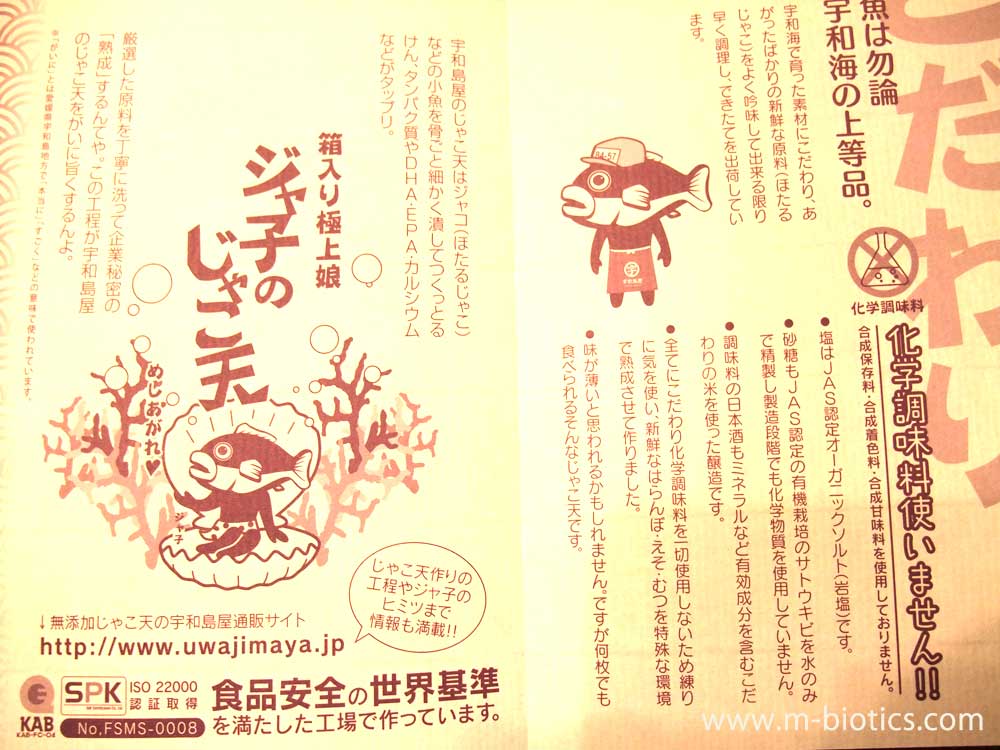 こだわり
魚は勿論
宇和海の上等品。
宇和海で育った素材にこだわり、あ
がったばかりの新鮮な原料(ほたる
じゃこ)をよく吟味して出来る限り
早く調理し、できたてを出荷してい
ます。
04-57
宇和島屋
化学調味料
化学調味料使いません!!
合成保存料・合成着色料・合成甘味料を使用しておりません。
●塩はJAS認定オーガニックソルト(岩塩)です。
●砂糖もJAS認定の有機栽培のサトウキビを水のみ
で精製し製造段階でも化学物質を使用していません。
●調味料の日本酒もミネラルなど有効成分を含むこだ
わりの米を使った醸造です。
●全てにこだわり化学調味料を一切使用しないため練り
に気を使い、新鮮なはらんぼ・えそ・むつを特殊な環境
で熟成させて作りました。
●味が薄いと思われるかもしれません。ですが何枚でも
食べられるそんなじゃこ天です。
宇和島屋のじゃこ天はジャコ(ほたるじゃこ)
などの小魚を骨ごと細かく潰してつくっとる
けん、タンパク質やDHA・EPA・カルシウム
などがタップリ。
箱入り極上娘
ジャ子の
じゃこ天
めしあがれ♥
ジャ子
厳選した原料を丁寧に洗って企業秘密の
「熟成」するんてや。この工程が宇和島屋
のじゃこ天をがいに旨くするんよ。
※「がいに」とは愛媛県宇和島地方で、「本当に」「すごく」などの意味で使われています。
じゃこ天作りの
工程やジャ子の
ヒミツまで
情報も満載!!
↓無添加じゃこ天の宇和島屋通販サイト
http://www.uwajimaya.jp
KAB
KAB-FC-04
SPK
ISO 22000
認証取得
No,FSMS-0008
食品安全の世界基準
を満たした工場で作っています。
www.m-biotics.com